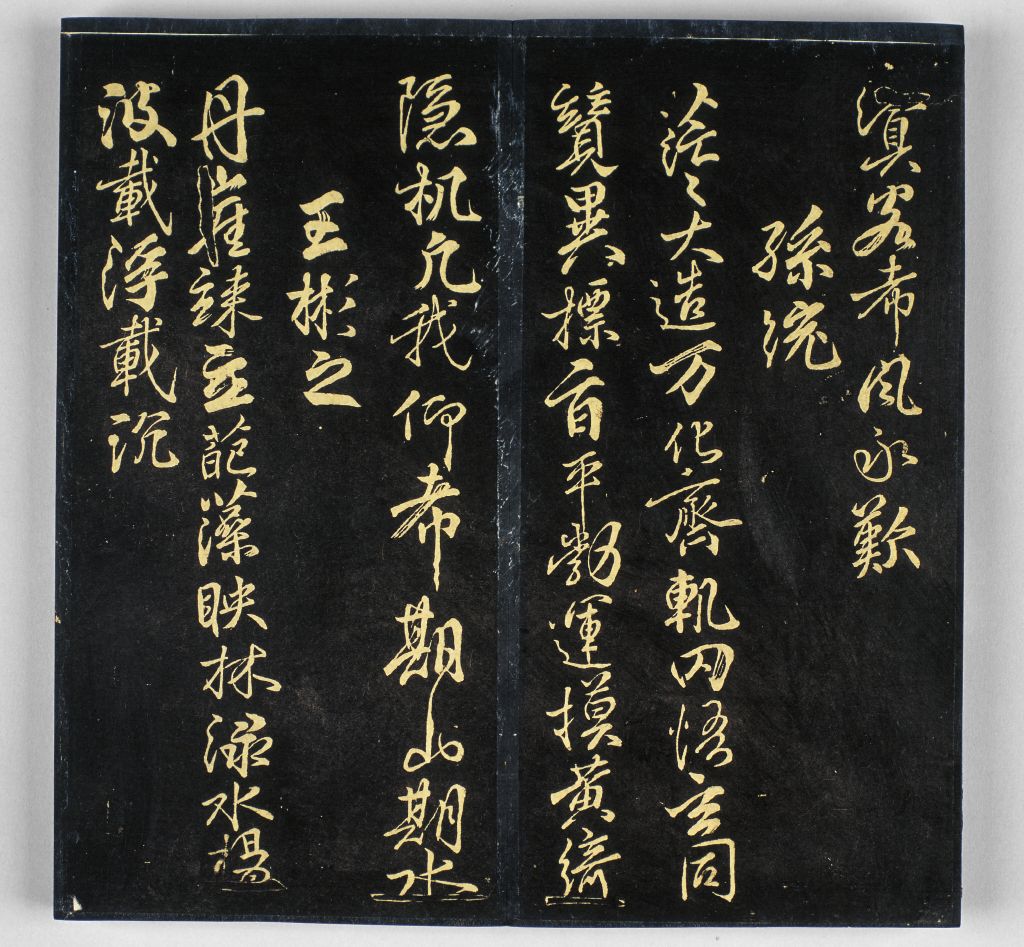 客希風永歎
孫統
茫〻大造万化齊軌罔悟玄同
競異標旨平勃運摸黃綺
隱机凡我仰希期山期水
王彬之
丹崖竦立葩藻映林淥水揚
波載浮載沉